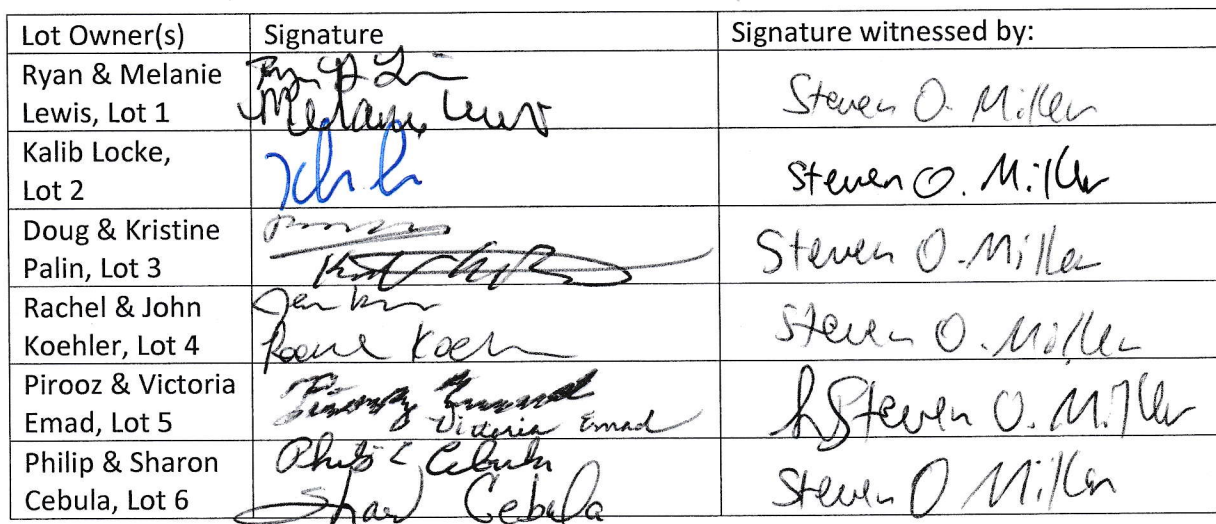 Lot Owner(s) Signature Signature witnessed by:
Ryan & Melanie
Lewis, Lot 1 Melanie Lewis Steven O. Miller
Kalib Locke,
Lot 2 Steven O. Miller
Doug & Kristine
Palin, Lot 3 Steven O. Miller
Rachel & John
Koehler, Lot 4 Steven O. Miller
Pirooz & Victoria
Emad, Lot 5 Victoria Emad Steven O. Miller
Philip & Sharon Cebula
Cebula, Lot 6 Cebula Steven O Miller